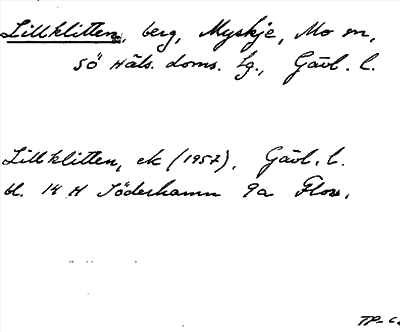 Lillklitten, berg, Myskje, Mo sn,
Sö Häls. doms. lg., Gävl. l.
Lillklitten, ek (1957), Gävl. l.
bl. 14 H Söderhamn 9a Flor.